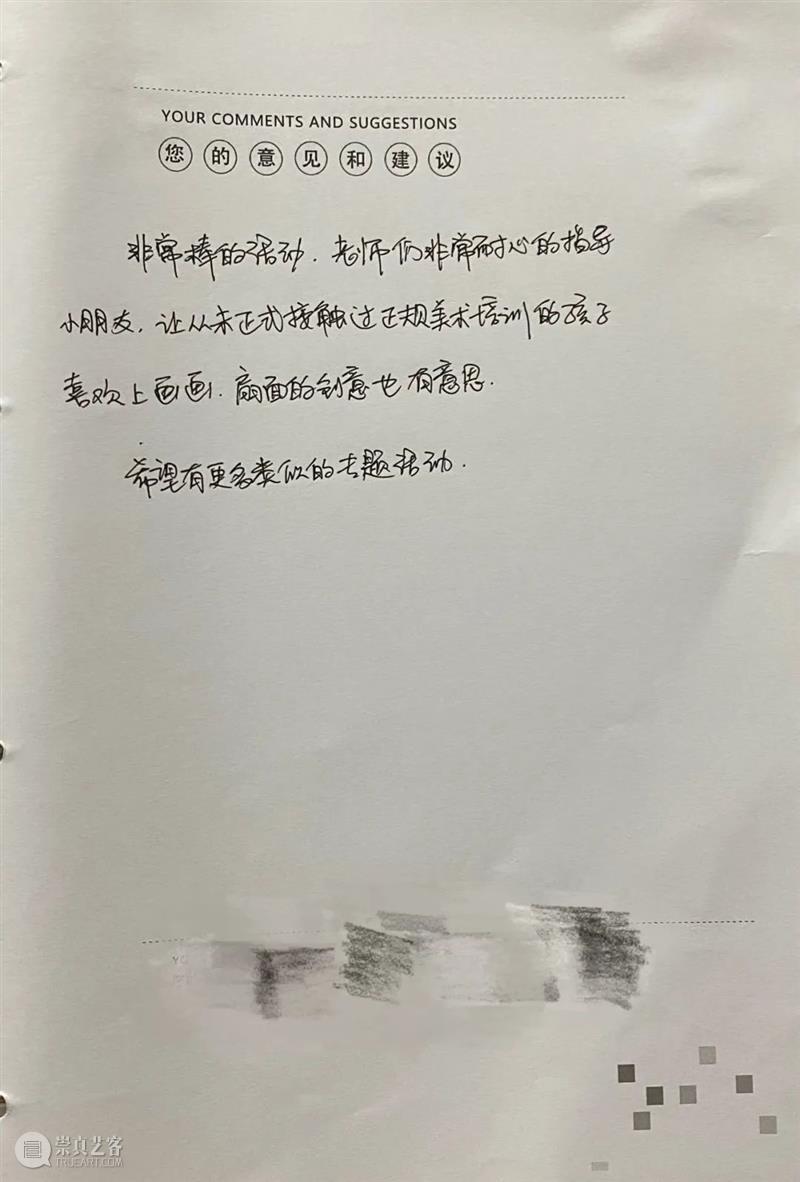 YOUR COMMENTS AND SUGGESTIONS
您的意见和建议
非常棒的活动.老师们非常耐心的指导
小朋友,让从未正式接触过正规美术培训的孩子
喜欢上画画.扇面的创意也有意思.
希望有更多类似的专题活动.
崇真艺客
TRUEART.COM